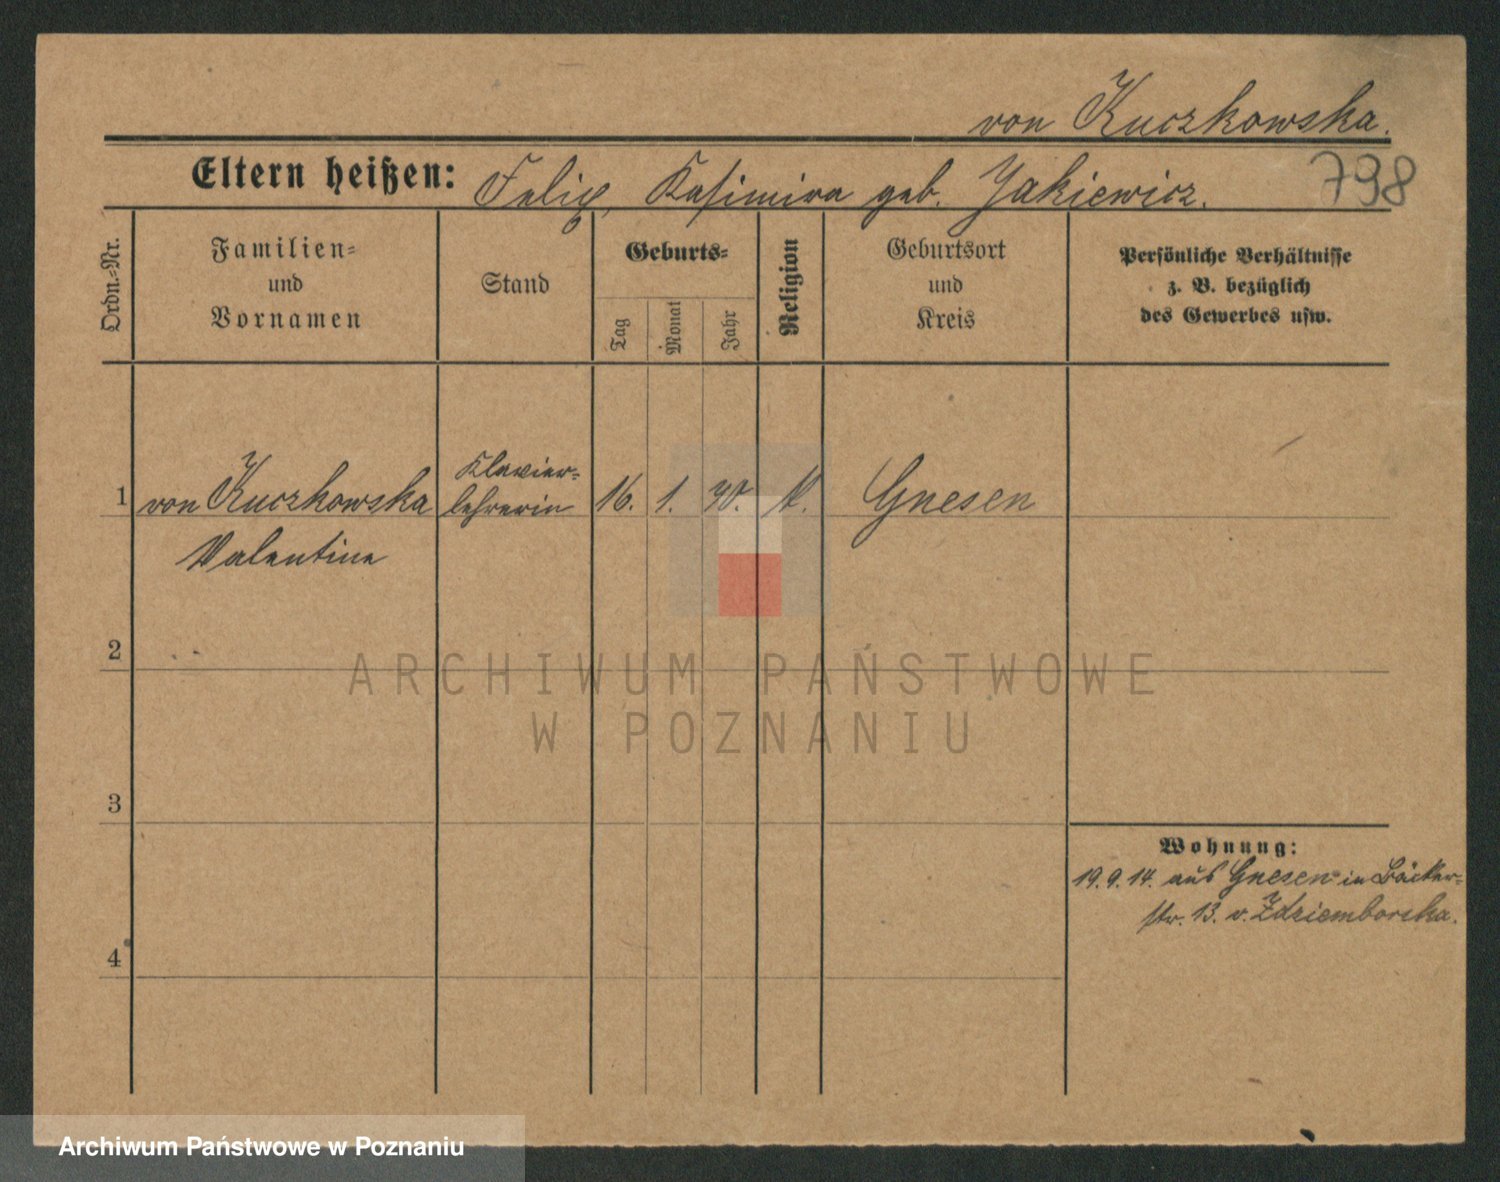 von Kuczkowska.
Eltern heißen: Felix, Kasimira geb. Jakiewicz.
798
Ordn.-Nr.
Familien-
und
Vornamen
Stand
Geburts-
Tag
Monat
Jahr
Religion
Geburtsort
und
Kreis
Persönliche Verhältnisse
z. B. bezüglich
des Gewerbes usw.
1 von Kuczkowska Klavier- 16. 1. K. Gnesen
lehrerin
Valentine
2
ARCHIWUM PAŃSTWOWE
W POZNANIU
3
Wohnung:
19.9.14. aus Gnesen in Bäcker-
str. 13. v. Zdziemborska.
4
Archiwum Państwowe w Poznaniu